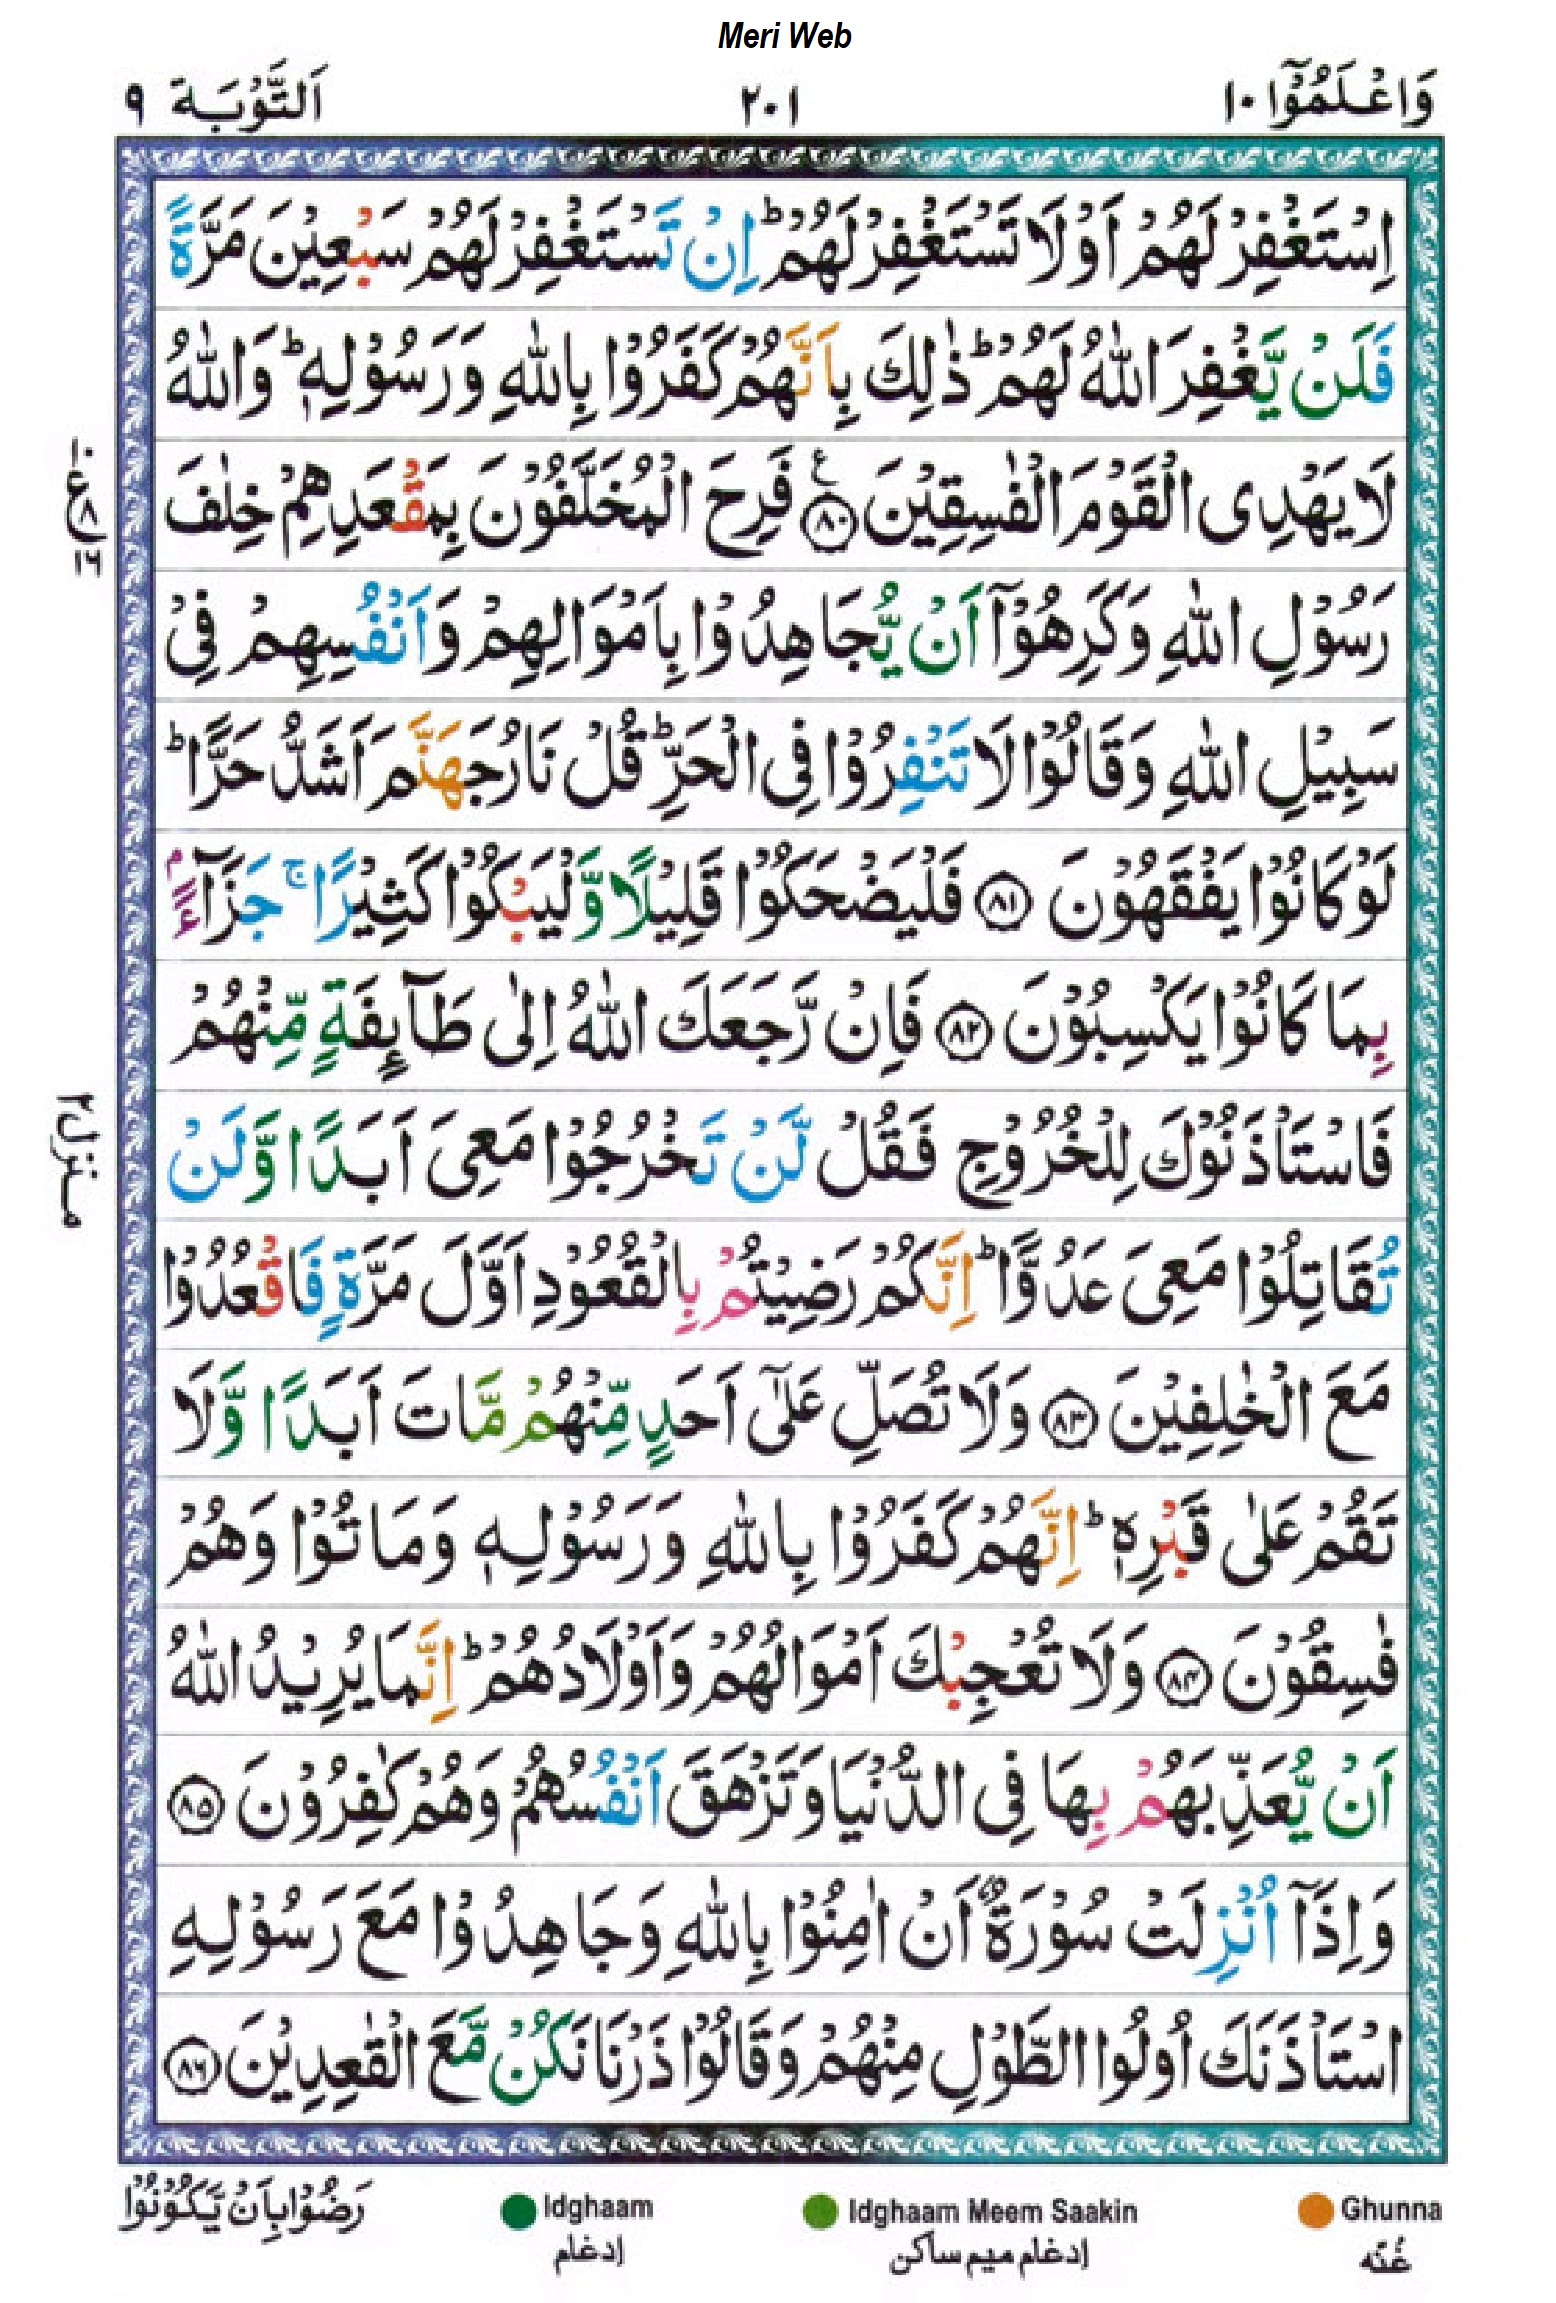 Meri Web
وَاعْلَمُوْۤا ۱۰
۲۰۱
اَلتَّوْبَة ۹
اِسْتَغْفِرْ لَهُمْ اَوْ لَا تَسْتَغْفِرْ لَهُمْ ؕ اِنْ تَسْتَغْفِرْ لَهُمْ سَبْعِیْنَ مَرَّةً
فَلَنْ یَّغْفِرَ اللّٰهُ لَهُمْ ؕ ذٰلِكَ بِاَنَّهُمْ كَفَرُوْا بِاللّٰهِ وَرَسُوْلِهٖ ؕ وَاللّٰهُ
لَا یَهْدِی الْقَوْمَ الْفٰسِقِیْنَ ۸۰ فَرِحَ الْمُخَلَّفُوْنَ بِمَقْعَدِهِمْ خِلٰفَ
رَسُوْلِ اللّٰهِ وَكَرِهُوْۤا اَنْ یُّجَاهِدُوْا بِاَمْوَالِهِمْ وَاَنْفُسِهِمْ فِیْ
سَبِیْلِ اللّٰهِ وَقَالُوْا لَا تَنْفِرُوْا فِی الْحَرِّ ؕ قُلْ نَارُ جَهَنَّمَ اَشَدُّ حَرًّا ؕ
لَوْ كَانُوْا یَفْقَهُوْنَ ۸۱ فَلْیَضْحَكُوْا قَلِیْلًا وَّلْیَبْكُوْا كَثِیْرًا ۚ جَزَآءًۢ
بِمَا كَانُوْا یَكْسِبُوْنَ ۸۲ فَاِنْ رَّجَعَكَ اللّٰهُ اِلٰی طَآىِٕفَةٍ مِّنْهُمْ
فَاسْتَاْذَنُوْكَ لِلْخُرُوْجِ فَقُلْ لَّنْ تَخْرُجُوْا مَعِیَ اَبَدًا وَّلَنْ
تُقَاتِلُوْا مَعِیَ عَدُوًّا ؕ اِنَّكُمْ رَضِیْتُمْ بِالْقُعُوْدِ اَوَّلَ مَرَّةٍ فَاقْعُدُوْا
مَعَ الْخٰلِفِیْنَ ۸۳ وَلَا تُصَلِّ عَلٰۤی اَحَدٍ مِّنْهُمْ مَّاتَ اَبَدًا وَّلَا
تَقُمْ عَلٰی قَبْرِهٖ ؕ اِنَّهُمْ كَفَرُوْا بِاللّٰهِ وَرَسُوْلِهٖ وَمَاتُوْا وَهُمْ
فٰسِقُوْنَ ۸۴ وَلَا تُعْجِبْكَ اَمْوَالُهُمْ وَاَوْلَادُهُمْ ؕ اِنَّمَا یُرِیْدُ اللّٰهُ
اَنْ یُّعَذِّبَهُمْ بِهَا فِی الدُّنْیَا وَتَزْهَقَ اَنْفُسُهُمْ وَهُمْ كٰفِرُوْنَ ۸۵
وَاِذَاۤ اُنْزِلَتْ سُوْرَةٌ اَنْ اٰمِنُوْا بِاللّٰهِ وَجَاهِدُوْا مَعَ رَسُوْلِهِ
اسْتَاْذَنَكَ اُولُوا الطَّوْلِ مِنْهُمْ وَقَالُوْا ذَرْنَا نَكُنْ مَّعَ الْقٰعِدِیْنَ ۸۶
ع
۱۰
۸
۱۶
منزل ۲
رَضُوْا بِاَنْ یَّكُوْنُوْا
Idghaam
ادغام
Idghaam Meem Saakin
ادغام میم ساکن
Ghunna
غُنّه